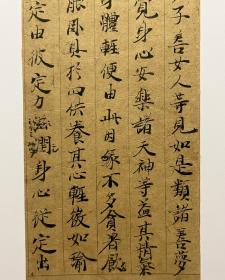 子善女人等見如是類諸善夢
覺身心安樂諸天神等益其精氣
身體輕便由此因緣不多貪著飲
服周具於四供養其心輕微如瑜
定由彼定力滋潤身心從定出